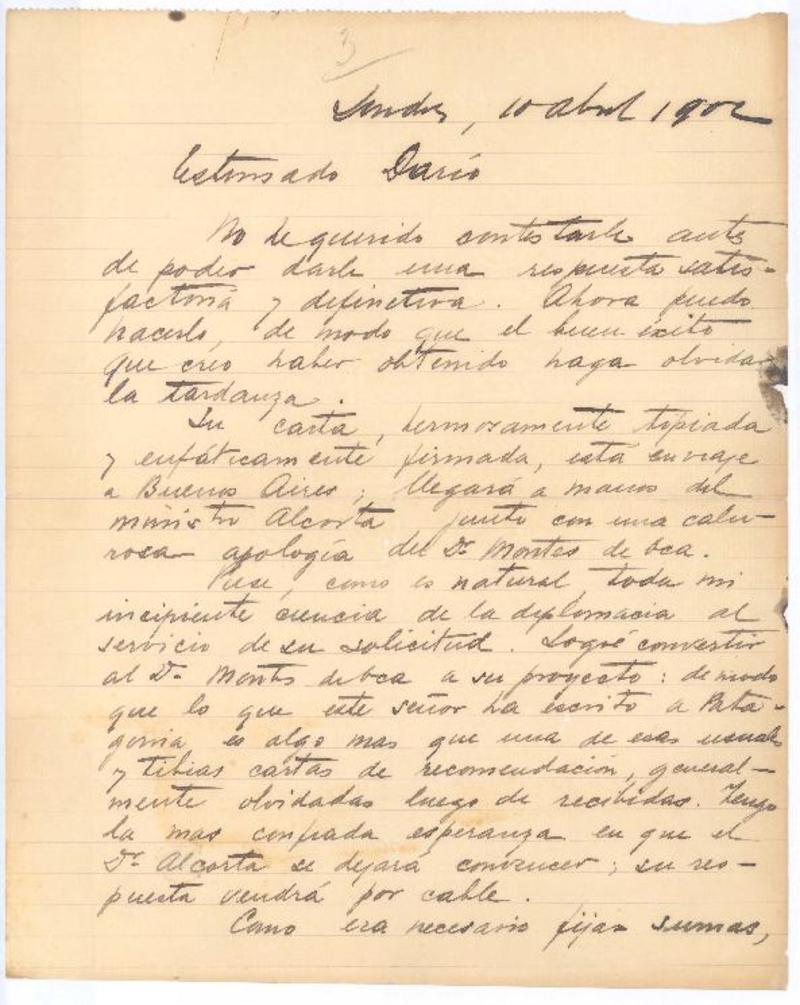 3
Londres, 10 abril 1902
Estimado Darío
No he querido contestarle antes
de poder darle una respuesta satis-
factoria y definitiva. Ahora puedo
hacerlo, de modo que el buen éxito
que creo haber obtenido haga olvidar
la tardanza.
Su carta, hermosamente tipiada
y enfáticamente firmada, está en viaje
a Buenos Aires; llegará a manos del
ministro Alcorta junto con una calu-
rosa apología del Dr. Montes de Oca.
Puse, como es natural, toda mi
incipiente ciencia de la diplomacia al
servicio de su solicitud. Logré convertir
al Dr. Montes de Oca a su proyecto: de modo
que lo que este señor ha escrito a Pata-
gonia es algo mas que una de esas usuales
y tibias cartas de recomendación, general-
mente olvidadas luego de recibidas. Tengo
la mas confiada esperanza en que el
Dr. Alcorta se dejará convencer; su res-
puesta vendrá por cable.
Como era necesario fijar sumas,